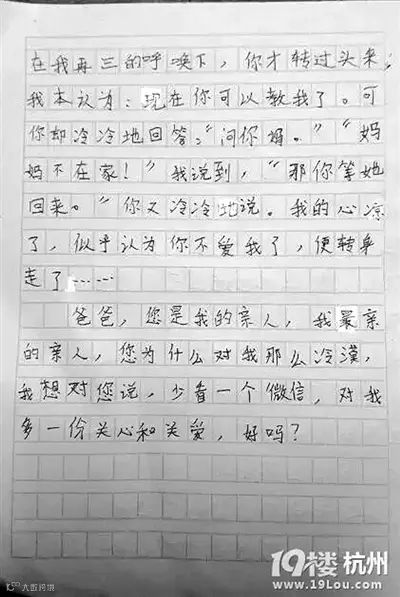 在我再三的呼唤下，你才转过头来，
我本认为：现在你可以教我了。可
你却冷冷地回答：“问你妈。”“妈
妈不在家！”我说到，“那你等她
回来。”你又冷冷地说。我的心凉
了，似乎认为你不爱我了，便转身
走了……
爸爸，您是我的亲人，我最亲
的亲人，您为什么对我那么冷漠，
我想对您说，少看一个微信，对我
多一份关心和关爱，好吗？
19楼 杭州
www.19Lou.com
大数跨境